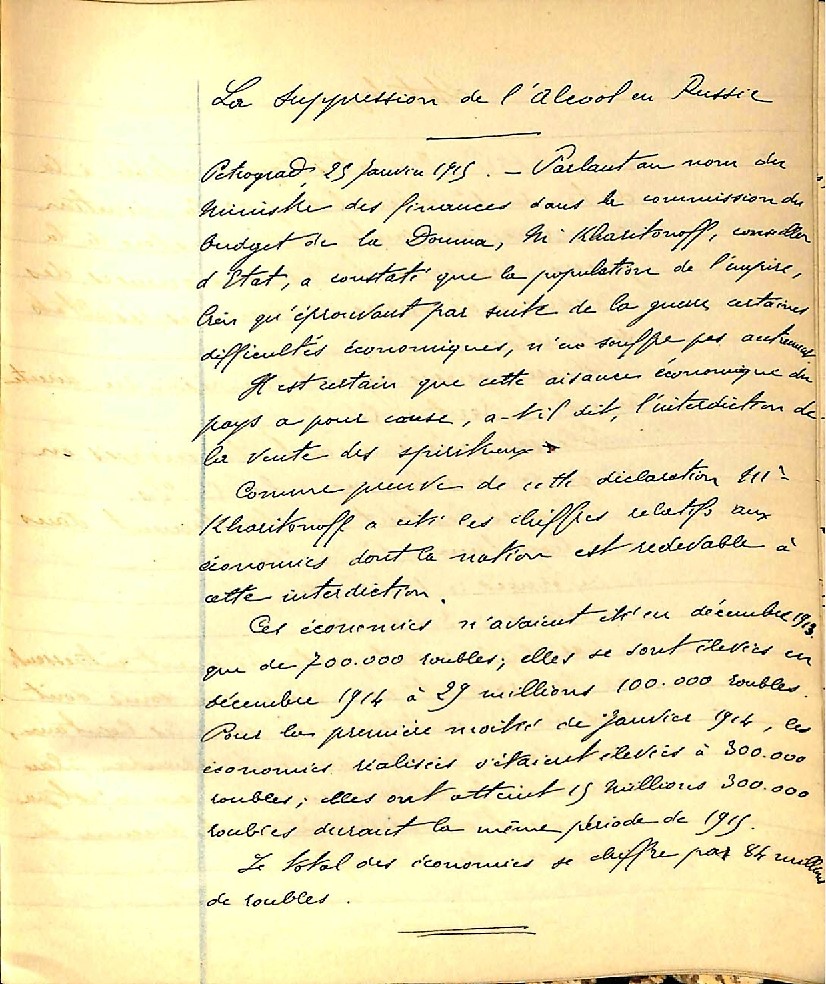 La Suppression de l'Alcool en Russie
Petrograd, 25 Janvier 1915. — Parlant au nom du
Ministre des finances dans la commission du
Budget de la Douma, Mr Kharitonoff, conseiller
d'Etat, a constaté que la population de l'empire,
bien qu'éprouvant par suite de la guerre certaines
difficultés économiques, n'en souffre pas autrement.
Il est certain que cette aisance économique du
pays a pour cause, a-t-il dit, l'interdiction de
la vente des spiritueux.
Comme preuve de cette déclaration Mr
Kharitonoff a cité les chiffres relatifs aux
économies dont la nation est redevable à
cette interdiction.
Ces économies n'avaient été en décembre 1913
que de 700.000 roubles; elles se sont élevées en
décembre 1914 à 29 millions 100.000 roubles.
Pour la première moitié de Janvier 1914, les
économies réalisées s'étaient élevées à 300.000
roubles; elles ont atteint 15 Millions 300.000
roubles durant la même période de 1915.
Le total des économies se chiffre par 84 millions
de roubles.